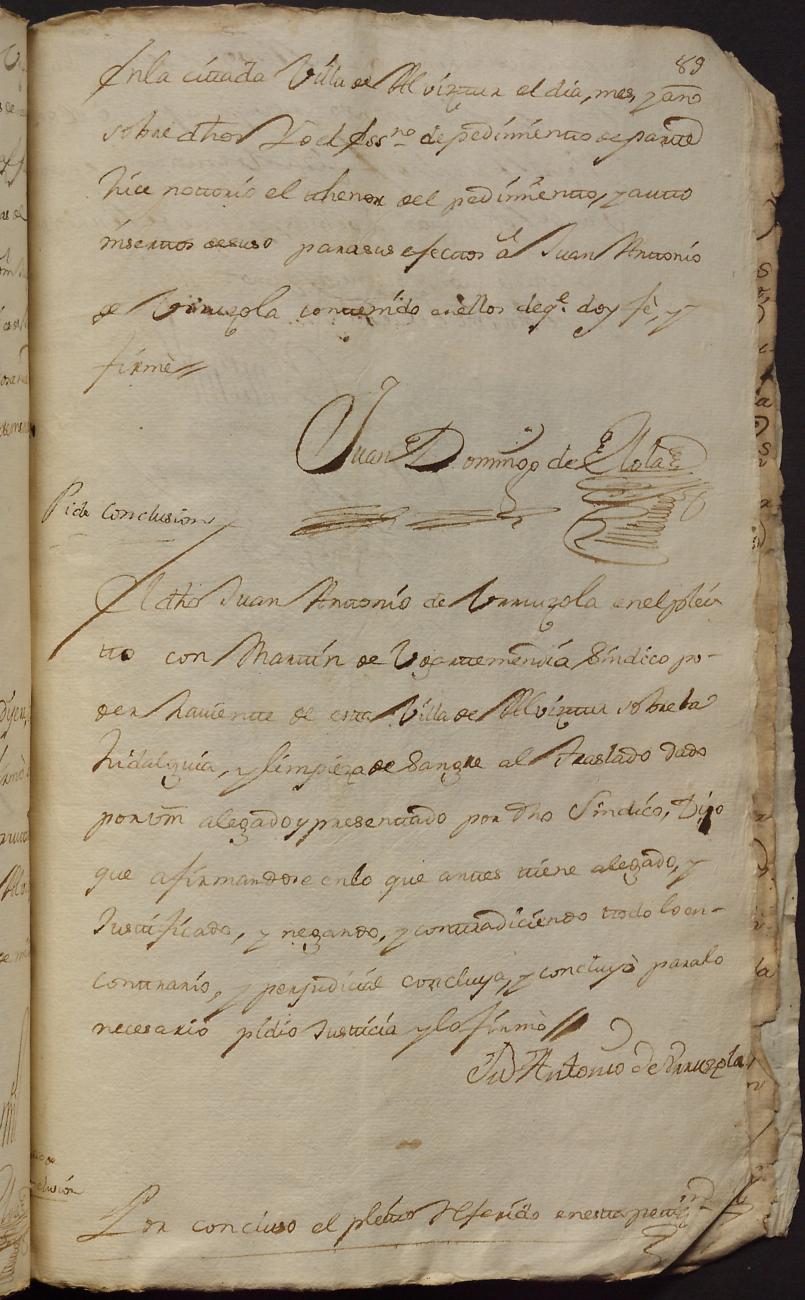 89
En la cittada Villa de Alviztur el dia, mes, y año
sobre dhos Yo el Essno de pedimientto de partte
hice nottorio el thenor del pedimientto, y autto
insertos desuso para sus efecttos â Juan Anttonio
de Urruzola conttenido en ellos de qe. doy fè, y
firmè
Juan Domingo de
Pide Conclusion
El dho Juan Anttonio de Urruzola en el pleit
tto con Marttin de Ugarttemendia Sindico po-
der haviente de estta Villa de Alviztur sobre la
hidalguia, y limpieza de Sangre al traslado dado
por vm alegado y presenttado por dho Sindico, Digo
que afirmandose en lo que anttes ttiene alegado, y
Justtificado, y negando, y conttradiciendo ttodo lo en-
conttrario, y perjudicial concluya, y concluyò para lo
necesario pidio Justticia y lo firmò
Ju Antonio de Urruzola
Por concluso el pleitto referido en estta pettizn